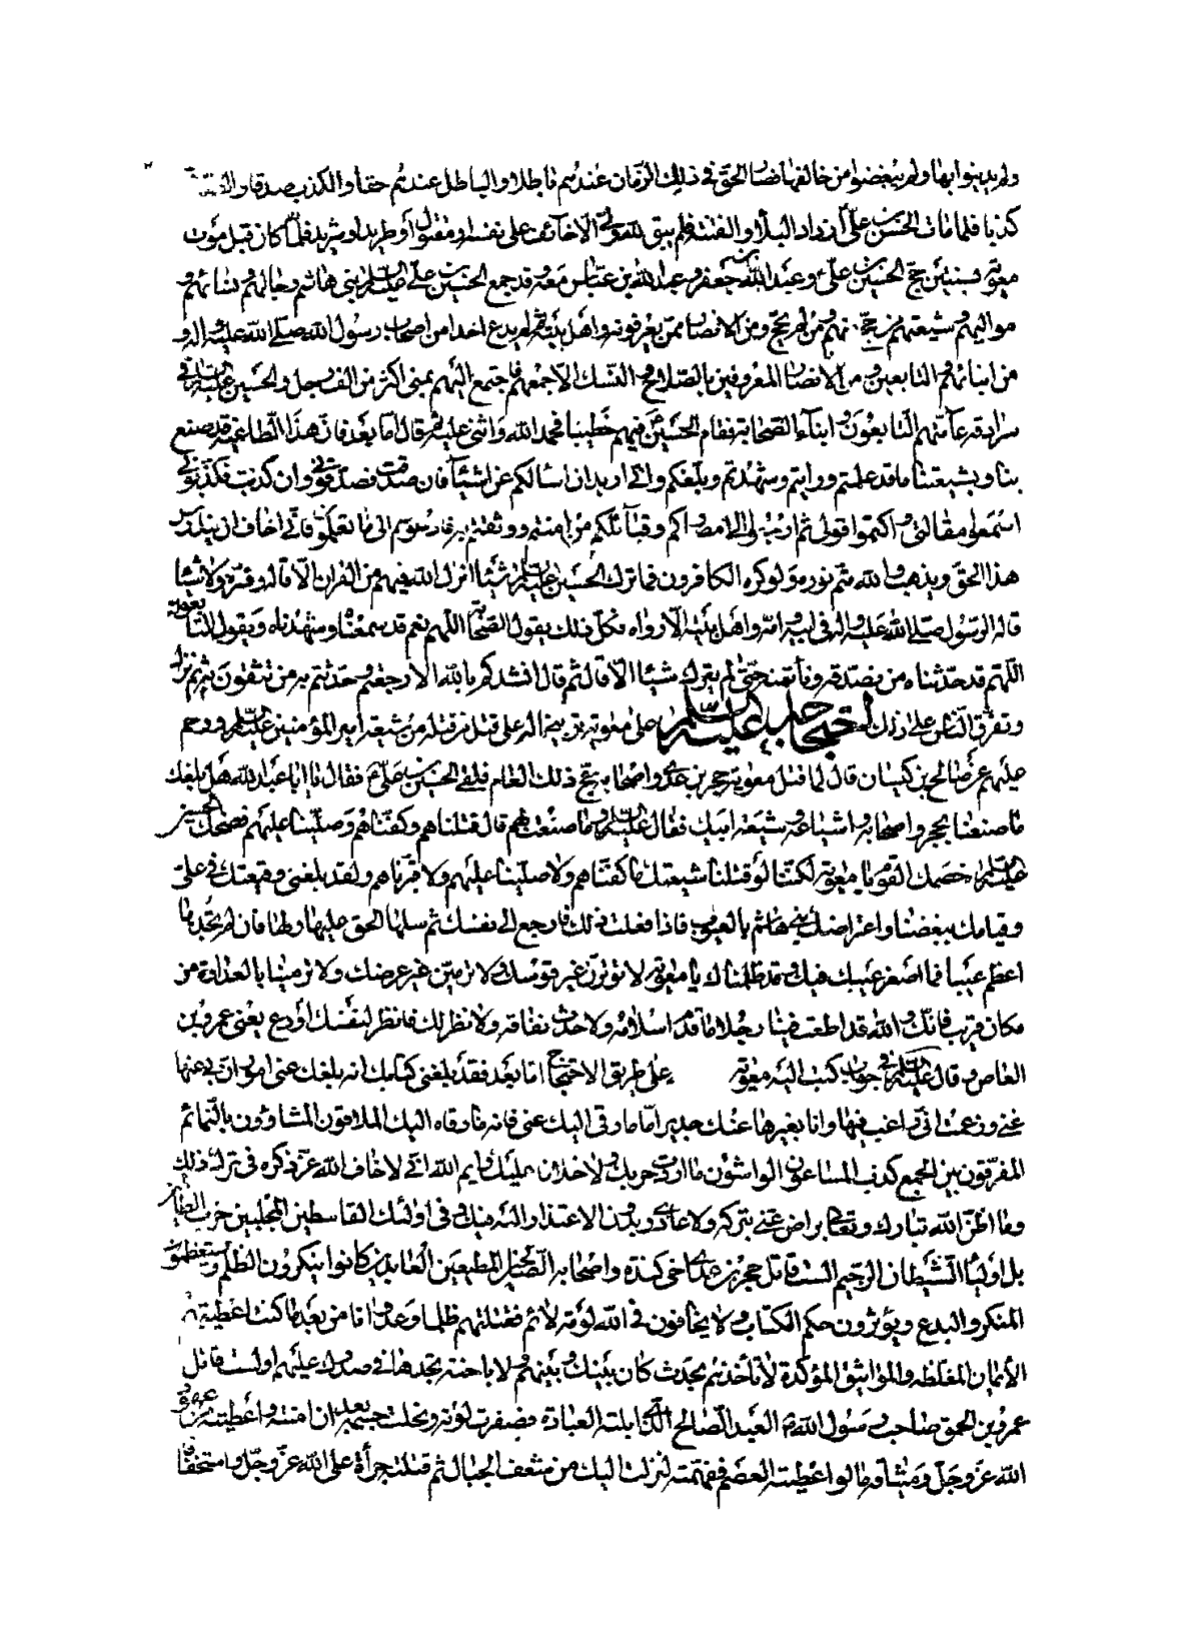 ولم يدينوا بها ولم يبغضوا من خالفها فصار الحق في ذلك الزمان عندهم باطلا والباطل عندهم حقا والكذب صدقا والصدق
كذبا فلما مات الحسن بن علي ازداد البلاء والفتنة فلم يبق لله ولي الا خائف على نفسه او مقتول او طريد او شريد فلما كان قبل موت
معوية بسنتين حج الحسين بن علي وعبد الله بن جعفر وعبد الله بن عباس معه وقد جمع الحسين بن علي عليه السلم بني هاشم رجالهم ونساءهم و
مواليهم وشيعتهم من حج منهم ومن لم يحج ومن الانصار ممن يعرفونه واهل بيته ثم لم يدع احدا من اصحاب رسول الله صلى الله عليه واله و
من ابنائهم والتابعين ومن الانصار المعروفين بالصلاح والنسك الا جمعهم فاجتمع اليهم بمنى اكثر من الف رجل والحسين عليه السلم في
سرادقه عامتهم التابعون وابناء الصحابة فقام الحسين ع فيهم خطيبا فحمد الله واثنى عليه ثم قال اما بعد فان هذا الطاغية قد صنع
بنا وبشيعتنا ما قد علمتم ورايتم وشهدتم وبلغكم واني اريد ان اسالكم عن اشياء فان صدقت فصدقوني وان كذبت فكذبوني
اسمعوا مقالتي واكتموا قولي ثم ارجعوا الى امصاركم وقبائلكم من امنتم ووثقتم به فادعوهم الى ما تعلمون فاني اخاف ان يندرس
هذا الحق ويذهب والله متم نوره ولو كره الكافرون فما ترك الحسين عليه السلم شيئا انزل الله فيهم من القران الا قاله وفسره ولا شيئا
قاله الرسول صلى الله عليه واله في ابيه وامه واهل بيته الا رواه وكل ذلك يقول الصحابة اللهم نعم قد سمعناه وشهدناه ويقول التابعون
اللهم قد حدثناه من نصدقه ونأتمنه حتى لم يترك شيئا الا قاله ثم قال انشدكم بالله الا رجعتم وحدثتم به من تثقون به ثم نزل
وتفرق الناس على ذلك احتجاجه عليه السلم على معوية توبيخا له على قتل من قتله من شيعة امير المؤمنين عليه السلم وترحم
عليهم عن صالح بن كيسان قال لما قتل معوية حجر بن عدي واصحابه حج ذلك العام فلقي الحسين بن علي ع فقال يا ابا عبد الله هل بلغك
ما صنعنا بحجر واصحابه واشياعه وشيعة ابيك فقال عليه السلم وما صنعت بهم قال قتلناهم وكفناهم وصلينا عليهم فضحك الحسين
عليه السلم ثم قال خصمك القوم يا معوية لكننا لو قتلنا شيعتك ما كفناهم ولا صلينا عليهم ولا قبرناهم ولقد بلغني وقيعتك في علي
وقيامك ببغضنا واعتراضك بني هاشم بالعيوب فاذا فعلت ذلك فارجع الى نفسك ثم سلها الحق عليها ولها فان لم تجدها
اعظم عيبا فما اصغر عيبك فيك وقد ظلمناك يا معوية لا توترن غير قوسك ولا ترمين غير غرضك ولا ترمنا بالعداوة من
مكان قريب فانك والله قد اطعت فينا رجلا ما قدم اسلامه ولا حدث نفاقه ولا نظر لك فانظر لنفسك او دع يعني عمرو بن
العاص وقال عليه السلم في جواب كتاب كتب اليه معوية على طريق الاحتجاج اما بعد فقد بلغني كتابك انه بلغك عني امور ان بي عنها
غنى وزعمت اني راغب فيها وانا بغيرها عنك جدير اما ما رقي اليك عني فانه ما رقاه اليك الملاقون المشاؤون بالنمائم
المفرقون بين الجمع كذب الساعون الواشون ما اردت حربك ولا خلافا عليك وايم الله اني لاخاف الله عز ذكره في ترك ذلك
وما اظن الله تبارك وتعالى براض عني بتركه ولا عاذري بدون الاعتذار اليه فيك وفي اولئك القاسطين الملبين حزب الظالمين
بل اولياء الشيطان الرجيم الست قاتل حجر بن عدي اخي كندة واصحابه الصالحين المطيعين العابدين كانوا ينكرون الظلم ويستعظمون
المنكر والبدع ويؤثرون حكم الكتاب ولا يخافون في الله لومة لائم فقتلتهم ظلما وعدوانا من بعد ما كنت اعطيتهم
الأيمان المغلظة والمواثيق المؤكدة لا تأخذهم بحدث كان بينك وبينهم ولا باحنة تجدها في صدرك عليهم اولست قاتل
عمرو بن الحمق صاحب رسول الله ص العبد الصالح الذي ابلته العبادة فصفرت لونه ونحلت جسمه بعد ان امنته واعطيته من عهود
الله عز وجل وميثاقه ما لو اعطيته العصم ففهمته لنزلت اليك من شعف الجبال ثم قتلته جرأة على الله عز وجل واستخفافا